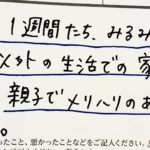 1週間たち、みるみ
メ外の生活での家
親子でメリハリのあ
。
ったこと、悪かったことなどをご記入ください。